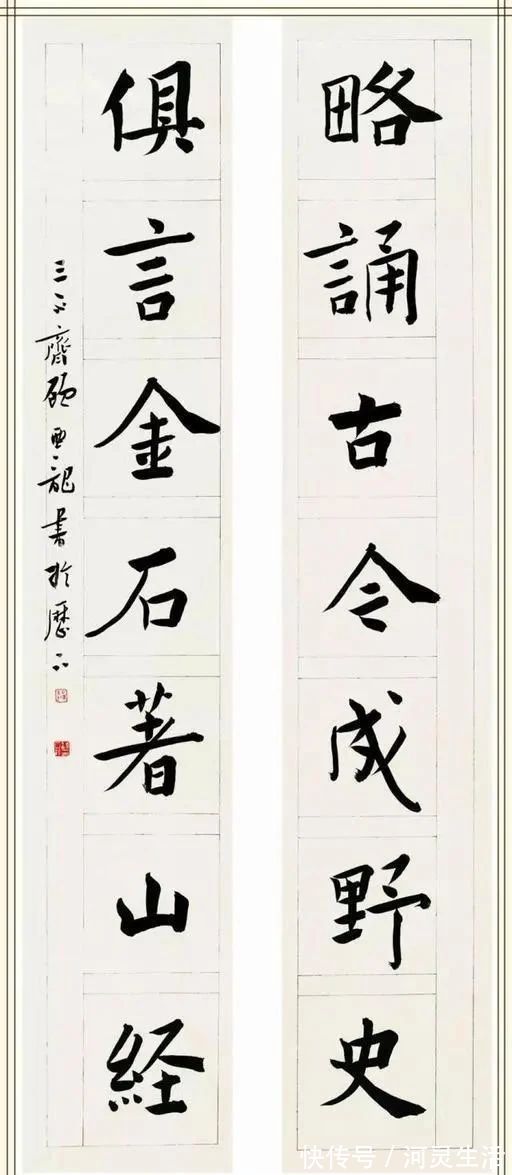 略誦古今成野史
俱言金石著山経
三不齋顧亞龍書於歷下
快传号 / 河灵生活